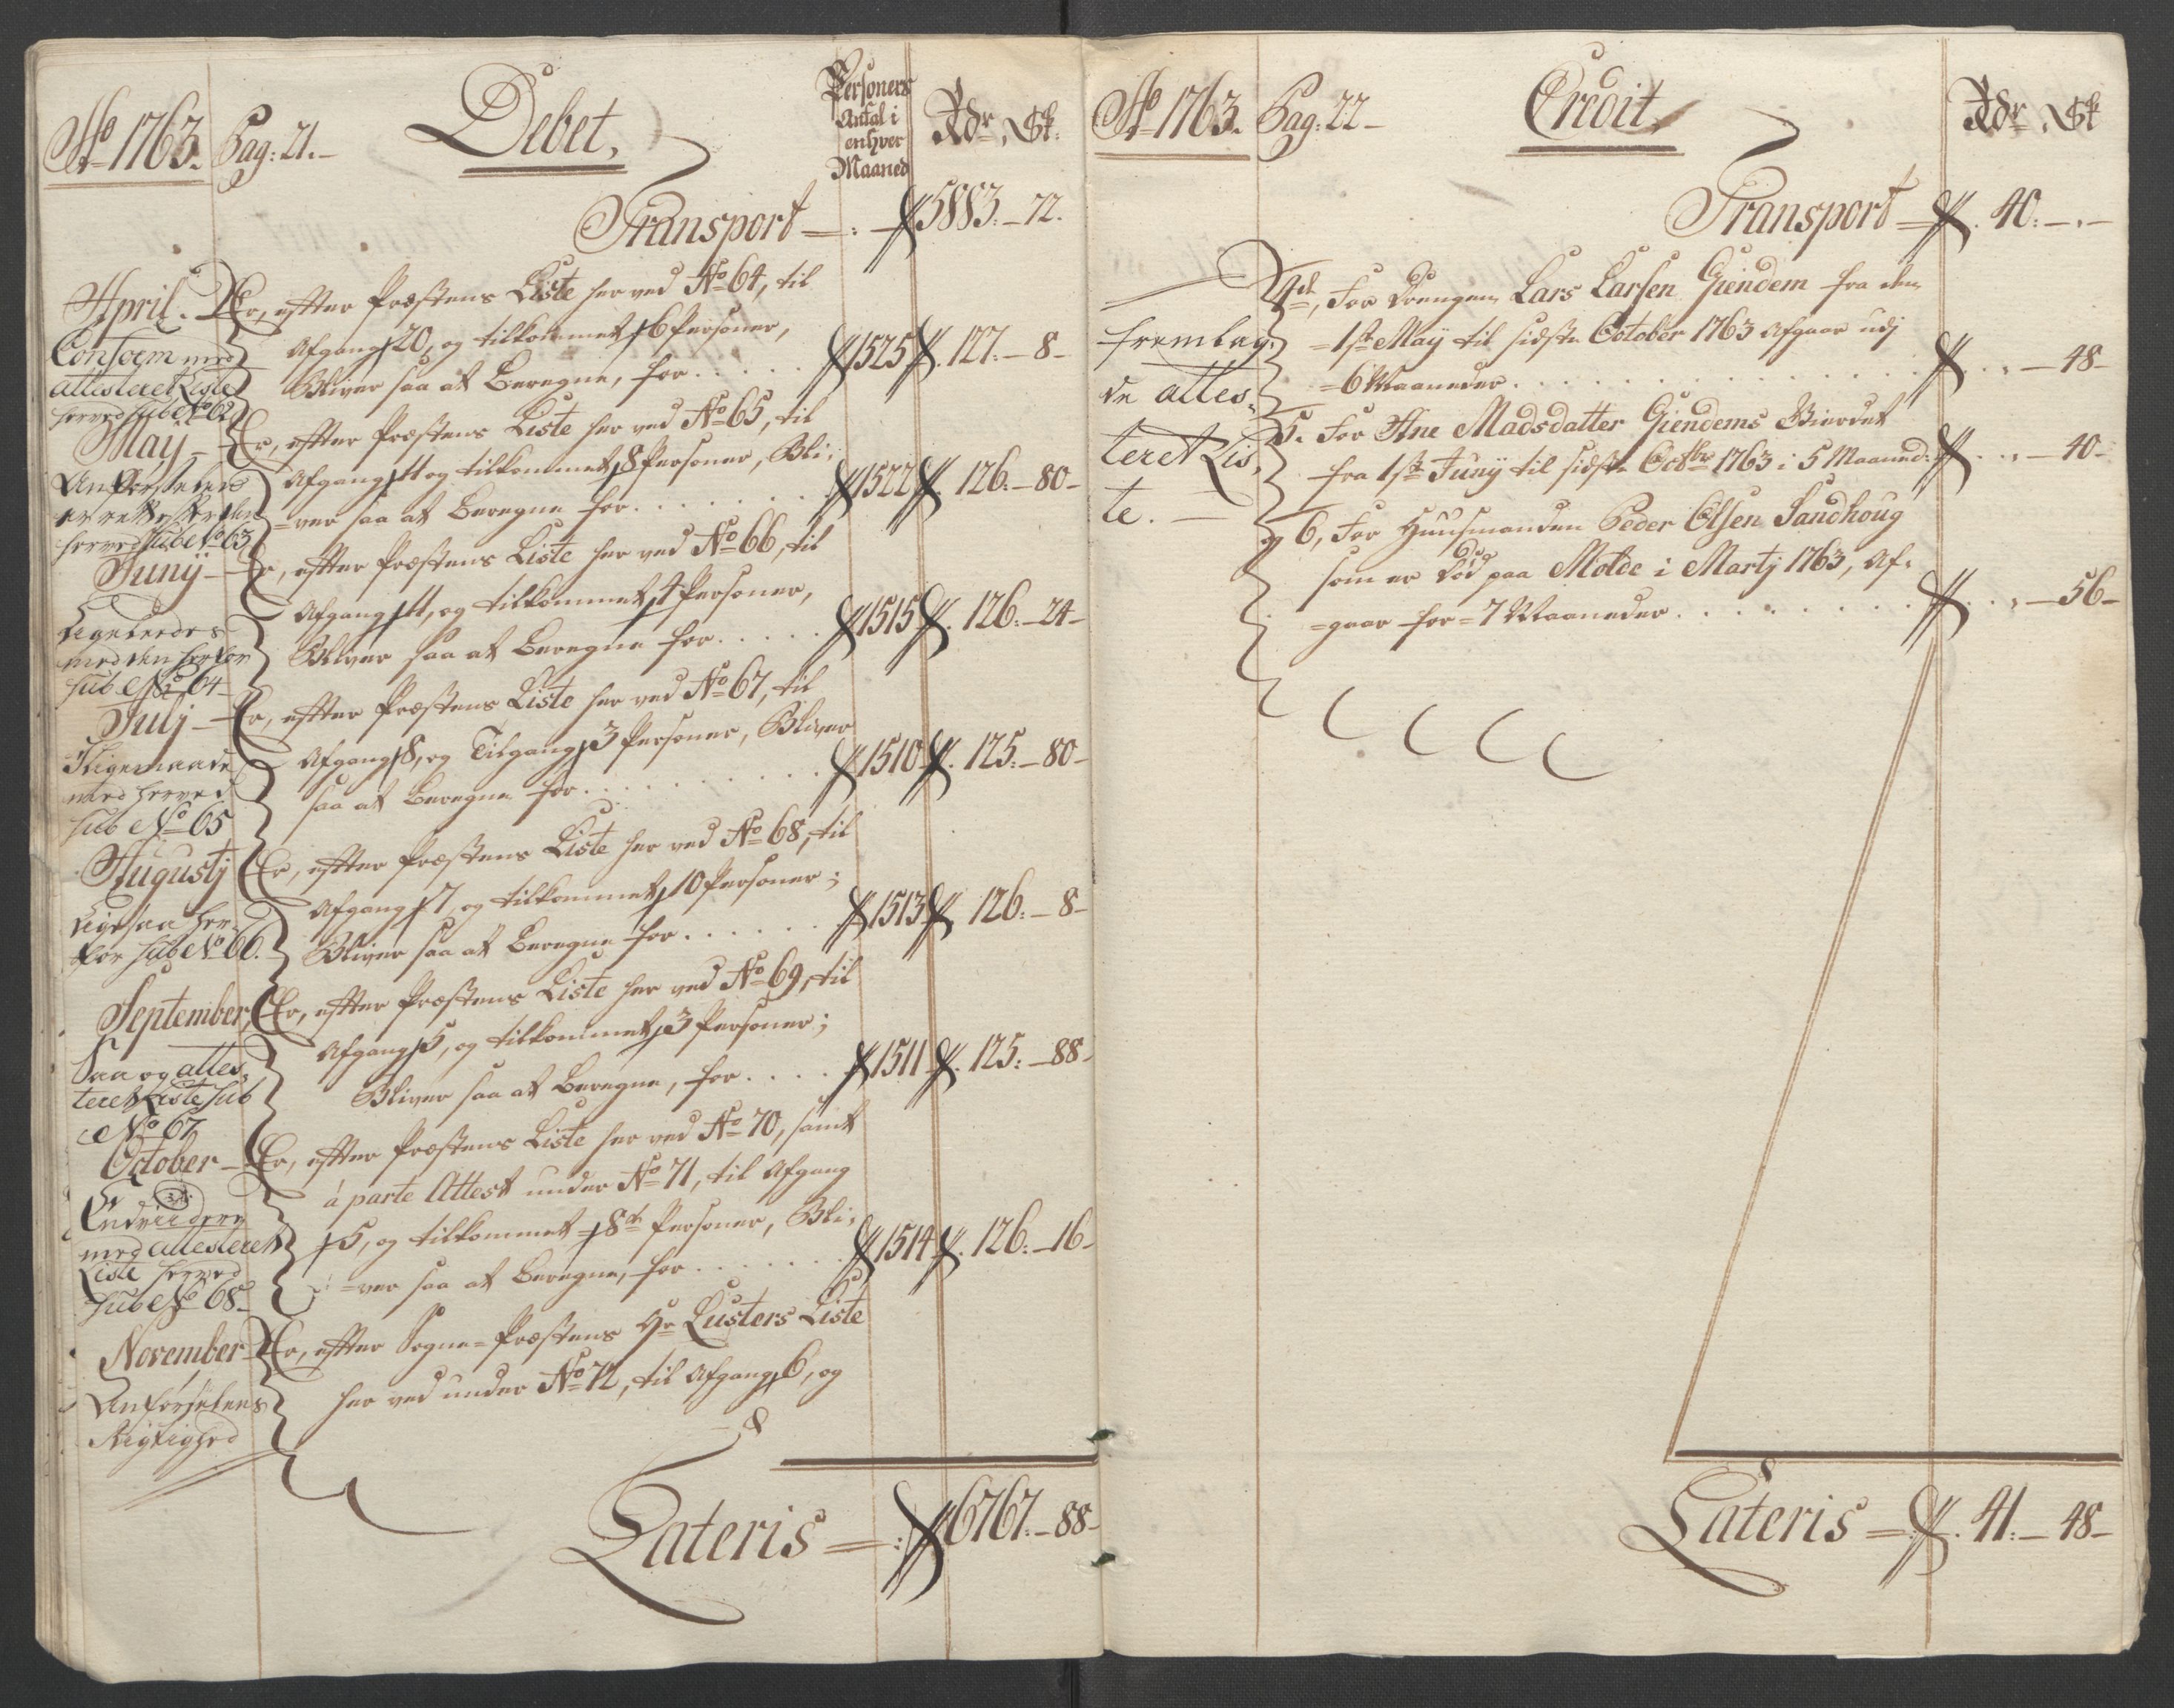 Ao 1763. Pag: 21. Debet, Personers Antal i enhver Maaned Rdr Sk:
Transport 5883. 72.
April. Er, efter Præstens Liste her ved No 64, til
Afgang 20, og tilkommet 6 Personer,
Bliver saa at Beregne, for . . . . . 1525 127. 8
Conform med
attesteret Liste
herved sub No 62
May Er, efter Præstens Liste her ved No 65, til
Afgang 11 og tilkommet 8 Personer, Bli=
=ver saa at Beregne for . . . . . 1522 126. 80
Anførselens
herved sub No 63
Junij Er, efter Præstens Liste her ved No 66, til
Afgang 11, og tilkommet 4 Personer,
Bliver saa at Beregne for . . . . . 1515 126. 24
Ligeledes
med den herfor
sub No 64
Julj Er, efter Præstens Liste her ved No 67, til
Afgang 8, og Tilgang 3 Personer, Bliver
saa at Beregne for . . . . . 1510 125. 80
Iligemaade
med herved
sub No 65
Augustj Er, efter Præstens Liste her ved No 68, til
Afgang 7, og tilkommet 10 Personer;
Bliver saa at Beregne for . . . . . 1513 126. 8
Ligesaa her
for sub No 66.
September, Er, efter Præstens Liste her ved No 69, til
Afgang 5, og tilkommet 3 Personer;
Bliver saa at Beregne, for . . . . 1511 125. 88
Saa og attes=
teret Liste sub
No 67
October Er, efter Præstens Liste her ved No 70, samt
à parte Attest under No 71, til Afgang
5, og tilkommet 8te Personer, Bli=
=ver saa at Beregne, for . . . . . 1514 126. 16
Endviidere
med attesteret
Liste herved
sub No 68
November Er, efter Sogne=Præstens Hr Lusters Liste
her ved under No 72, til Afgang 6, og
Anførselens
Rigtighed
Lateris 6767. 88
Ao 1763. Pag: 22 Credit, Rdr Sk
Transport 40.
4de, For Drengen Lars Larsen Giendem fra den
=1ste May til sidste October 1763 Afgaar udj
=6 Maaneder . . . . . 48
5. For Ane Madsdatter Giendems Vierdet
fra 1ste Junij til sidste Octbr 1763 i 5 Maaned: 40
og 6, For Huusmanden Peder Olsen Sandhoug
som er Død paa Molde i Martj 1763, Af=
=gaar for =7 Maaneder . . . . . 56
fremlag=
de attes=
teret Lis=
te.
Lateris 41. 48